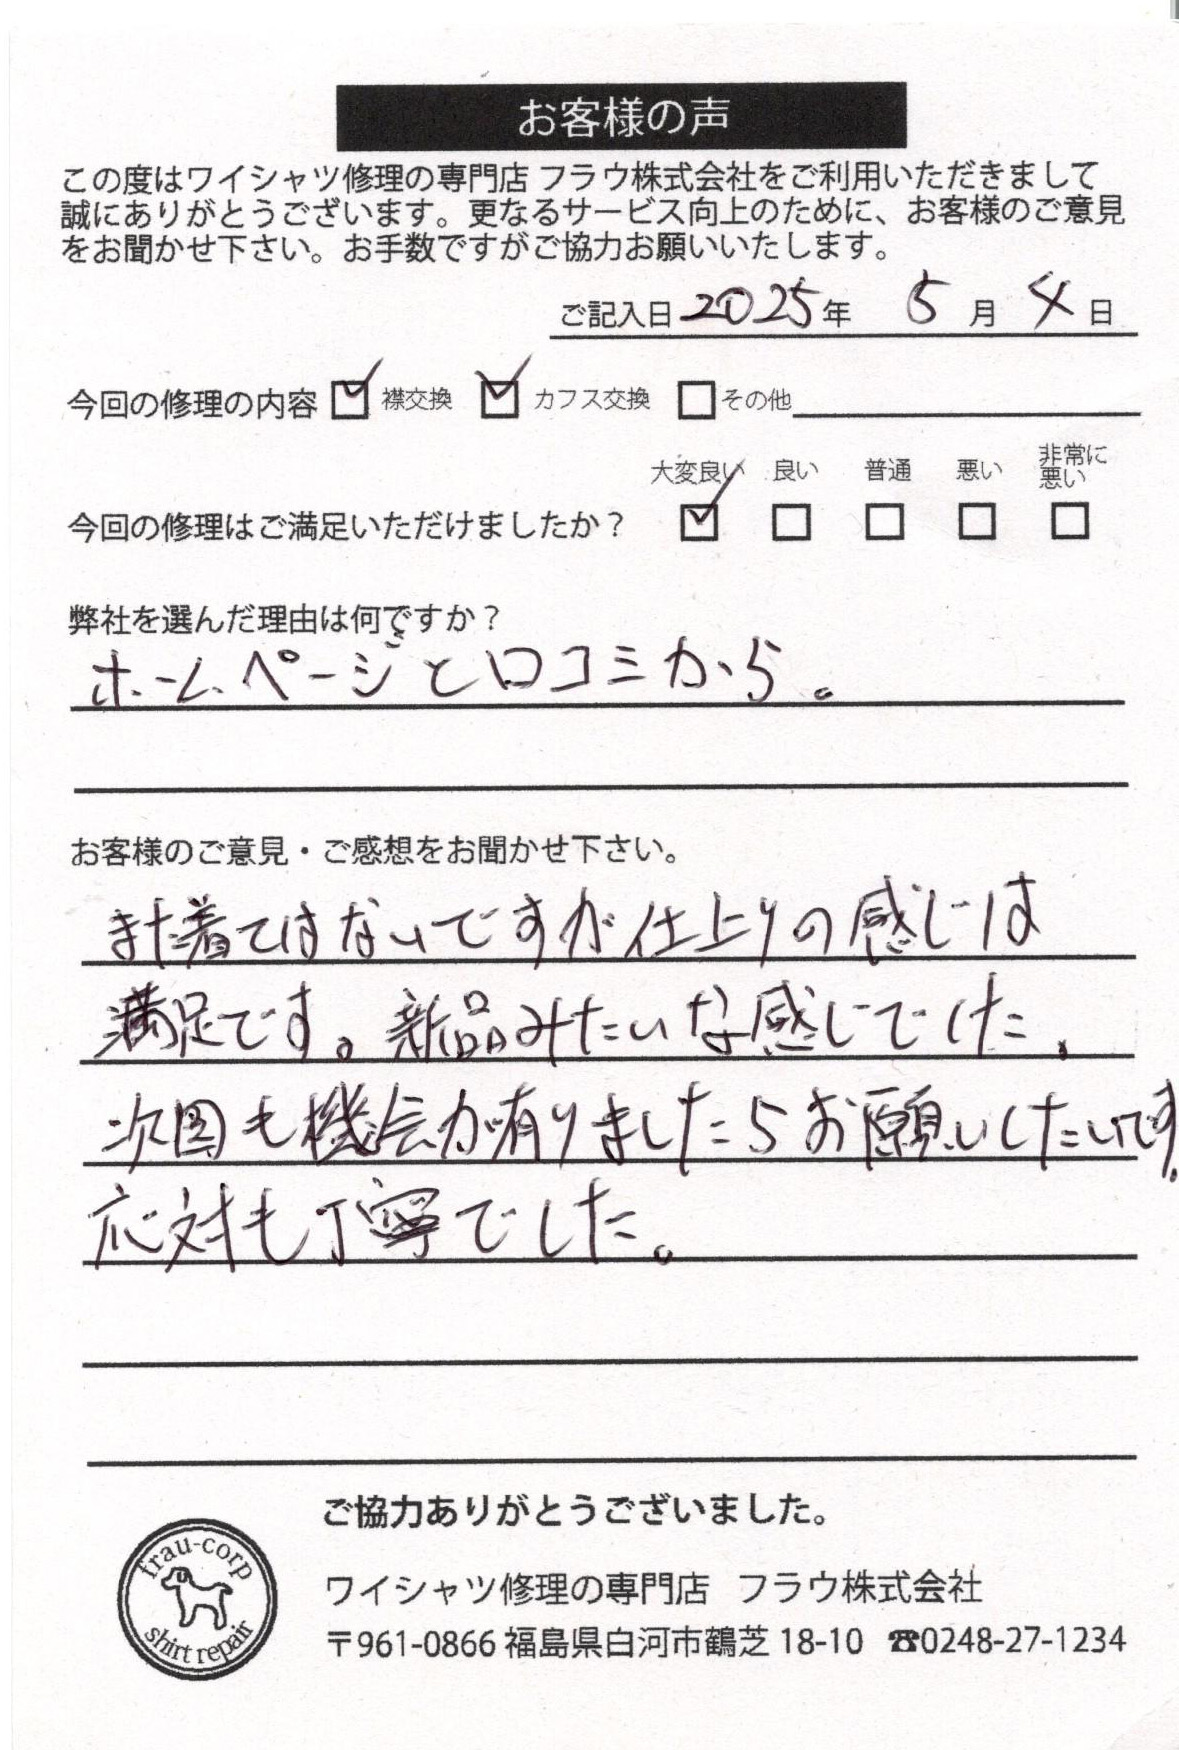 お客様の声
この度はワイシャツ修理の専門店 フラウ株式会社をご利用いただきまして
誠にありがとうございます。更なるサービス向上のために、お客様のご意見
をお聞かせ下さい。お手数ですがご協力お願いいたします。
ご記入日 2025年 5月 4日
今回の修理の内容 襟交換 カフス交換 その他
大変良い 良い 普通 悪い 非常に悪い
今回の修理はご満足いただけましたか？
弊社を選んだ理由は何ですか？
ホームページと口コミから。
お客様のご意見・ご感想をお聞かせ下さい。
まだ着てはないですが仕上りの感じは
満足です。新品みたいな感じでした。
次回も機会が有りましたらお願いしたいです。
応対も丁寧でした。
ご協力ありがとうございました。
frau-corp
shirt repair
ワイシャツ修理の専門店 フラウ株式会社
〒961-0866 福島県白河市鶴芝 18-10 ☎0248-27-1234